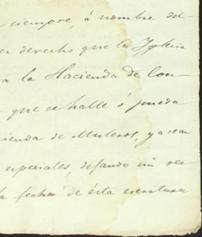 siempre, á nombre del
derecho que la Yglesia
la Hacienda de Con-
que se halle ó pueda
cienda de Muleros, ya sean
especiales, dejando un re-
la fecha de ésta escritura